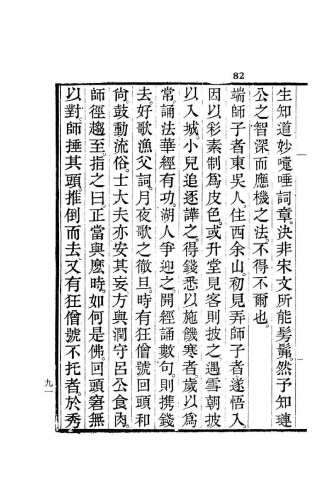 82
生知道妙嚏唾詞章決非宋文所能髣髴然予知璉
公之智深而應機之法不得不爾也。
端師子者東吳人住西余山初見弄師子者遂悟入
因以彩素制為皮色或升堂見客則披之遇雪朝披
以入城小兒追逐譁之得錢悉以施饑寒者歲以為
常誦法華經有功湖人爭迎之開經誦數句則攜錢
去好歌漁父詞月夜歌之徹旦時有狂僧號回頭和
尚鼓動流俗士大夫亦安其妄方與潤守呂公食肉
師徑趨至指之曰正當與麼時如何是佛回頭窘無
以對師捶其頭推倒而去又有狂僧號不托者於秀
九一